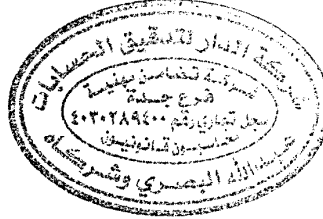 شركة الدار لتدقيق الحسابات
شركة تضامن مهنية
فرع جدة
سجل تجاري رقم ٤٠٣٠٢٨٩٤٠٠
محاسبون قانونيون
عبدالله البصري وشركاه